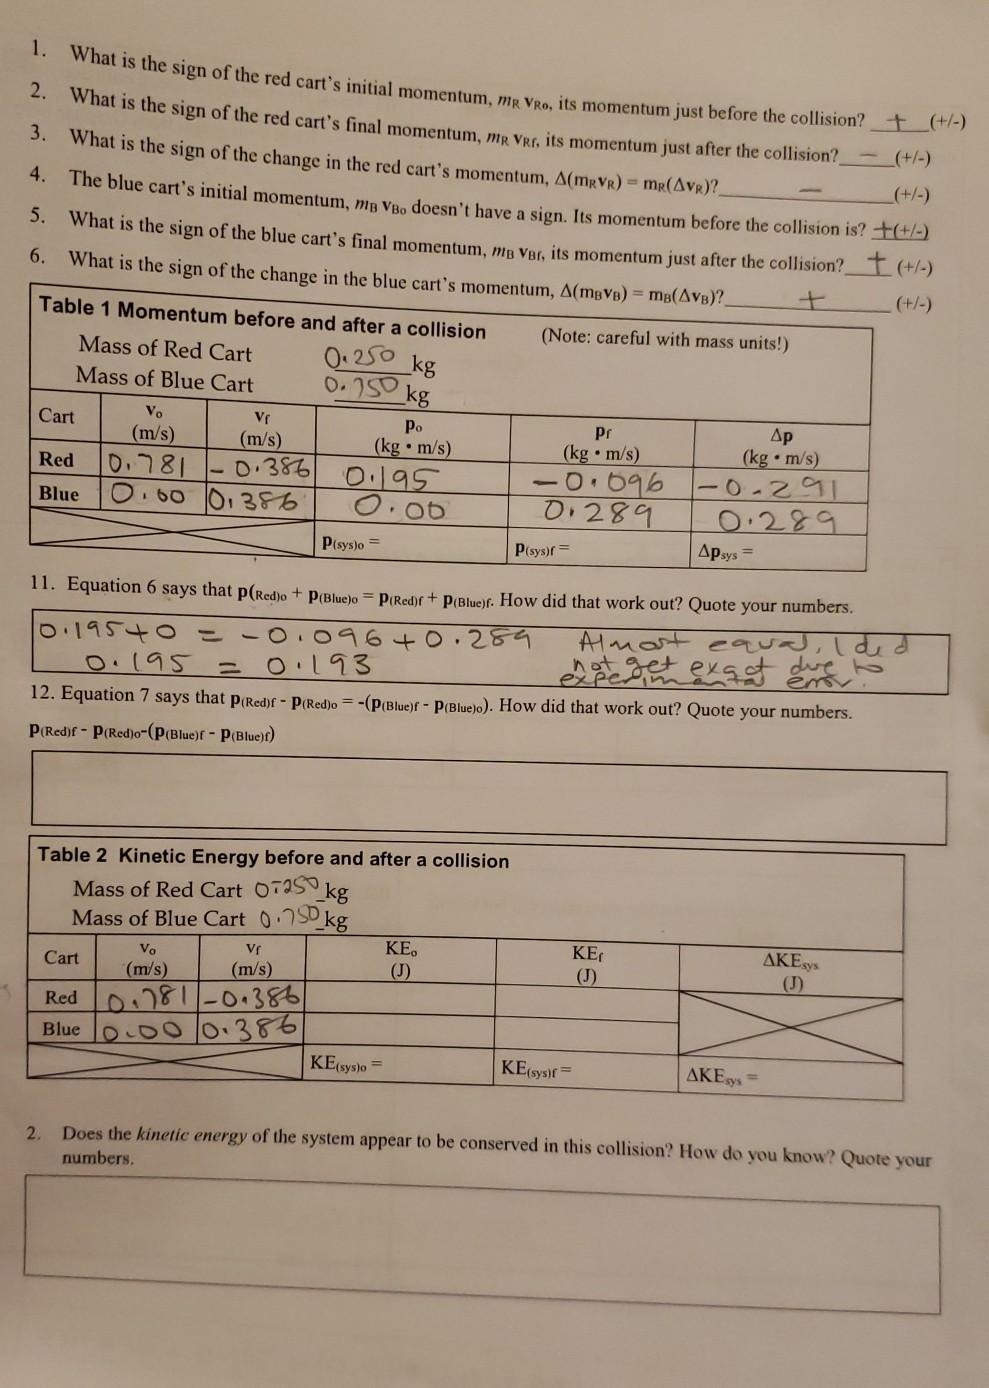 1. What is the sign of the red cart's initial momentum, mR vRo, its momentum just before the collision? + (+/-)
2. What is the sign of the red cart's final momentum, mR vRf, its momentum just after the collision? - (+/-)
3. What is the sign of the change in the red cart's momentum, Δ(mRvR) = mR(ΔvR)? - (+/-)
4. The blue cart's initial momentum, mB vBo doesn't have a sign. Its momentum before the collision is? + (+/-)
5. What is the sign of the blue cart's final momentum, mB vBf, its momentum just after the collision? + (+/-)
6. What is the sign of the change in the blue cart's momentum, Δ(mBvB) = mB(ΔvB)? + (+/-)
Table 1 Momentum before and after a collision (Note: careful with mass units!)
Mass of Red Cart 0.250 kg
Mass of Blue Cart 0.750 kg
Cart vo (m/s) vf (m/s) po (kg • m/s) pf (kg • m/s) Δp (kg • m/s)
Red 0.781 -0.386 0.195 -0.096 -0.291
Blue 0.00 0.386 0.00 0.289 0.289
p(sys)o = p(sys)f = Δpsys =
11. Equation 6 says that p(Red)o + p(Blue)o = p(Red)f + p(Blue)f. How did that work out? Quote your numbers.
0.195+0 = -0.096+0.289 Almost equal, I did
0.195 = 0.193 not get exact due to
experimental error.
12. Equation 7 says that p(Red)f - p(Red)o = -(p(Blue)f - p(Blue)o). How did that work out? Quote your numbers.
p(Red)f - p(Red)o-(p(Blue)f - p(Blue)f)
Table 2 Kinetic Energy before and after a collision
Mass of Red Cart 0.250 kg
Mass of Blue Cart 0.750 kg
Cart vo (m/s) vf (m/s) KEo (J) KEf (J) ΔKEsys (J)
Red 0.781 -0.386
Blue 0.00 0.386
KE(sys)o = KE(sys)f = ΔKEsys =
2. Does the kinetic energy of the system appear to be conserved in this collision? How do you know? Quote your
numbers.